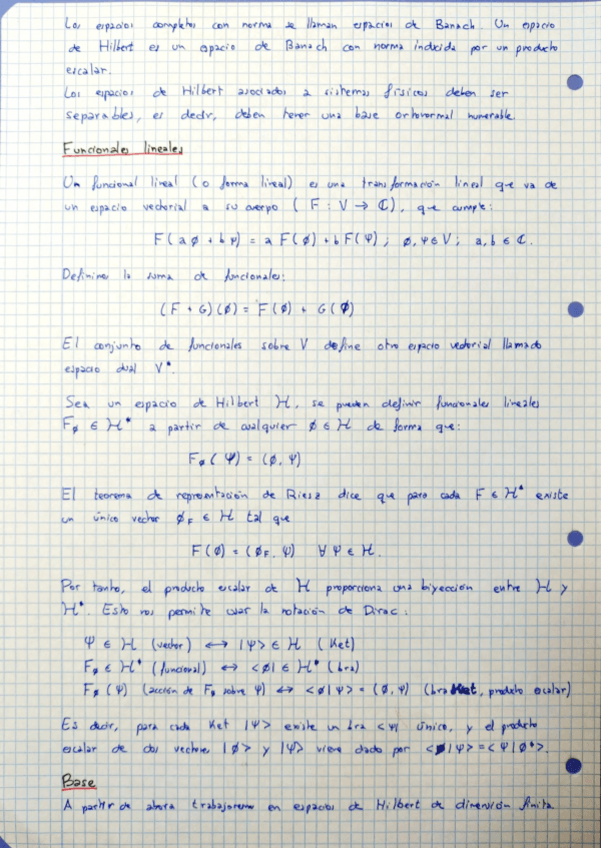 Los espacios completos con norma se llaman espacios de Banach. Un espacio
de Hilbert es un espacio de Banach con norma inducida por un producto
escalar.
Los espacios de Hilbert asociados a sistemas físicos deben ser
separables, es decir, deben tener una base ortonormal numerable.
Funcionales lineales
Un funcional lineal (o forma lineal) es una transformación lineal que va de
un espacio vectorial a su cuerpo ( F : V → ℂ ), que cumple:
F(aφ + bψ) = a F(φ) + b F(ψ) ; φ, ψ ∈ V ; a, b ∈ ℂ.
Definimos la suma de funcionales:
(F + G)(φ) = F(φ) + G(φ)
El conjunto de funcionales sobre V define otro espacio vectorial llamado
espacio dual V*.
Sea un espacio de Hilbert H, se pueden definir funcionales lineales
Fφ ∈ H* a partir de cualquier φ ∈ H de forma que:
Fφ(ψ) = (φ, ψ)
El teorema de representación de Riesz dice que para cada F ∈ H* existe
un único vector φF ∈ H tal que
F(φ) = (φF, ψ) ∀ ψ ∈ H.
Por tanto, el producto escalar de H proporciona una biyección entre H y
H*. Esto nos permite usar la notación de Dirac:
ψ ∈ H (vector) ↔ |ψ> ∈ H (Ket)
Fφ ∈ H* (funcional) ↔ <φ| ∈ H* (bra)
Fφ(ψ) (acción de Fφ sobre ψ) ↔ <φ|ψ> = (φ, ψ) (bra Ket, producto escalar)
Es decir, para cada Ket |ψ> existe un bra <ψ| único, y el producto
escalar de dos vectores |φ> y |ψ> viene dado por <φ|ψ> = <ψ|φ*>.
Base
A partir de ahora trabajaremos en espacios de Hilbert de dimensión finita.